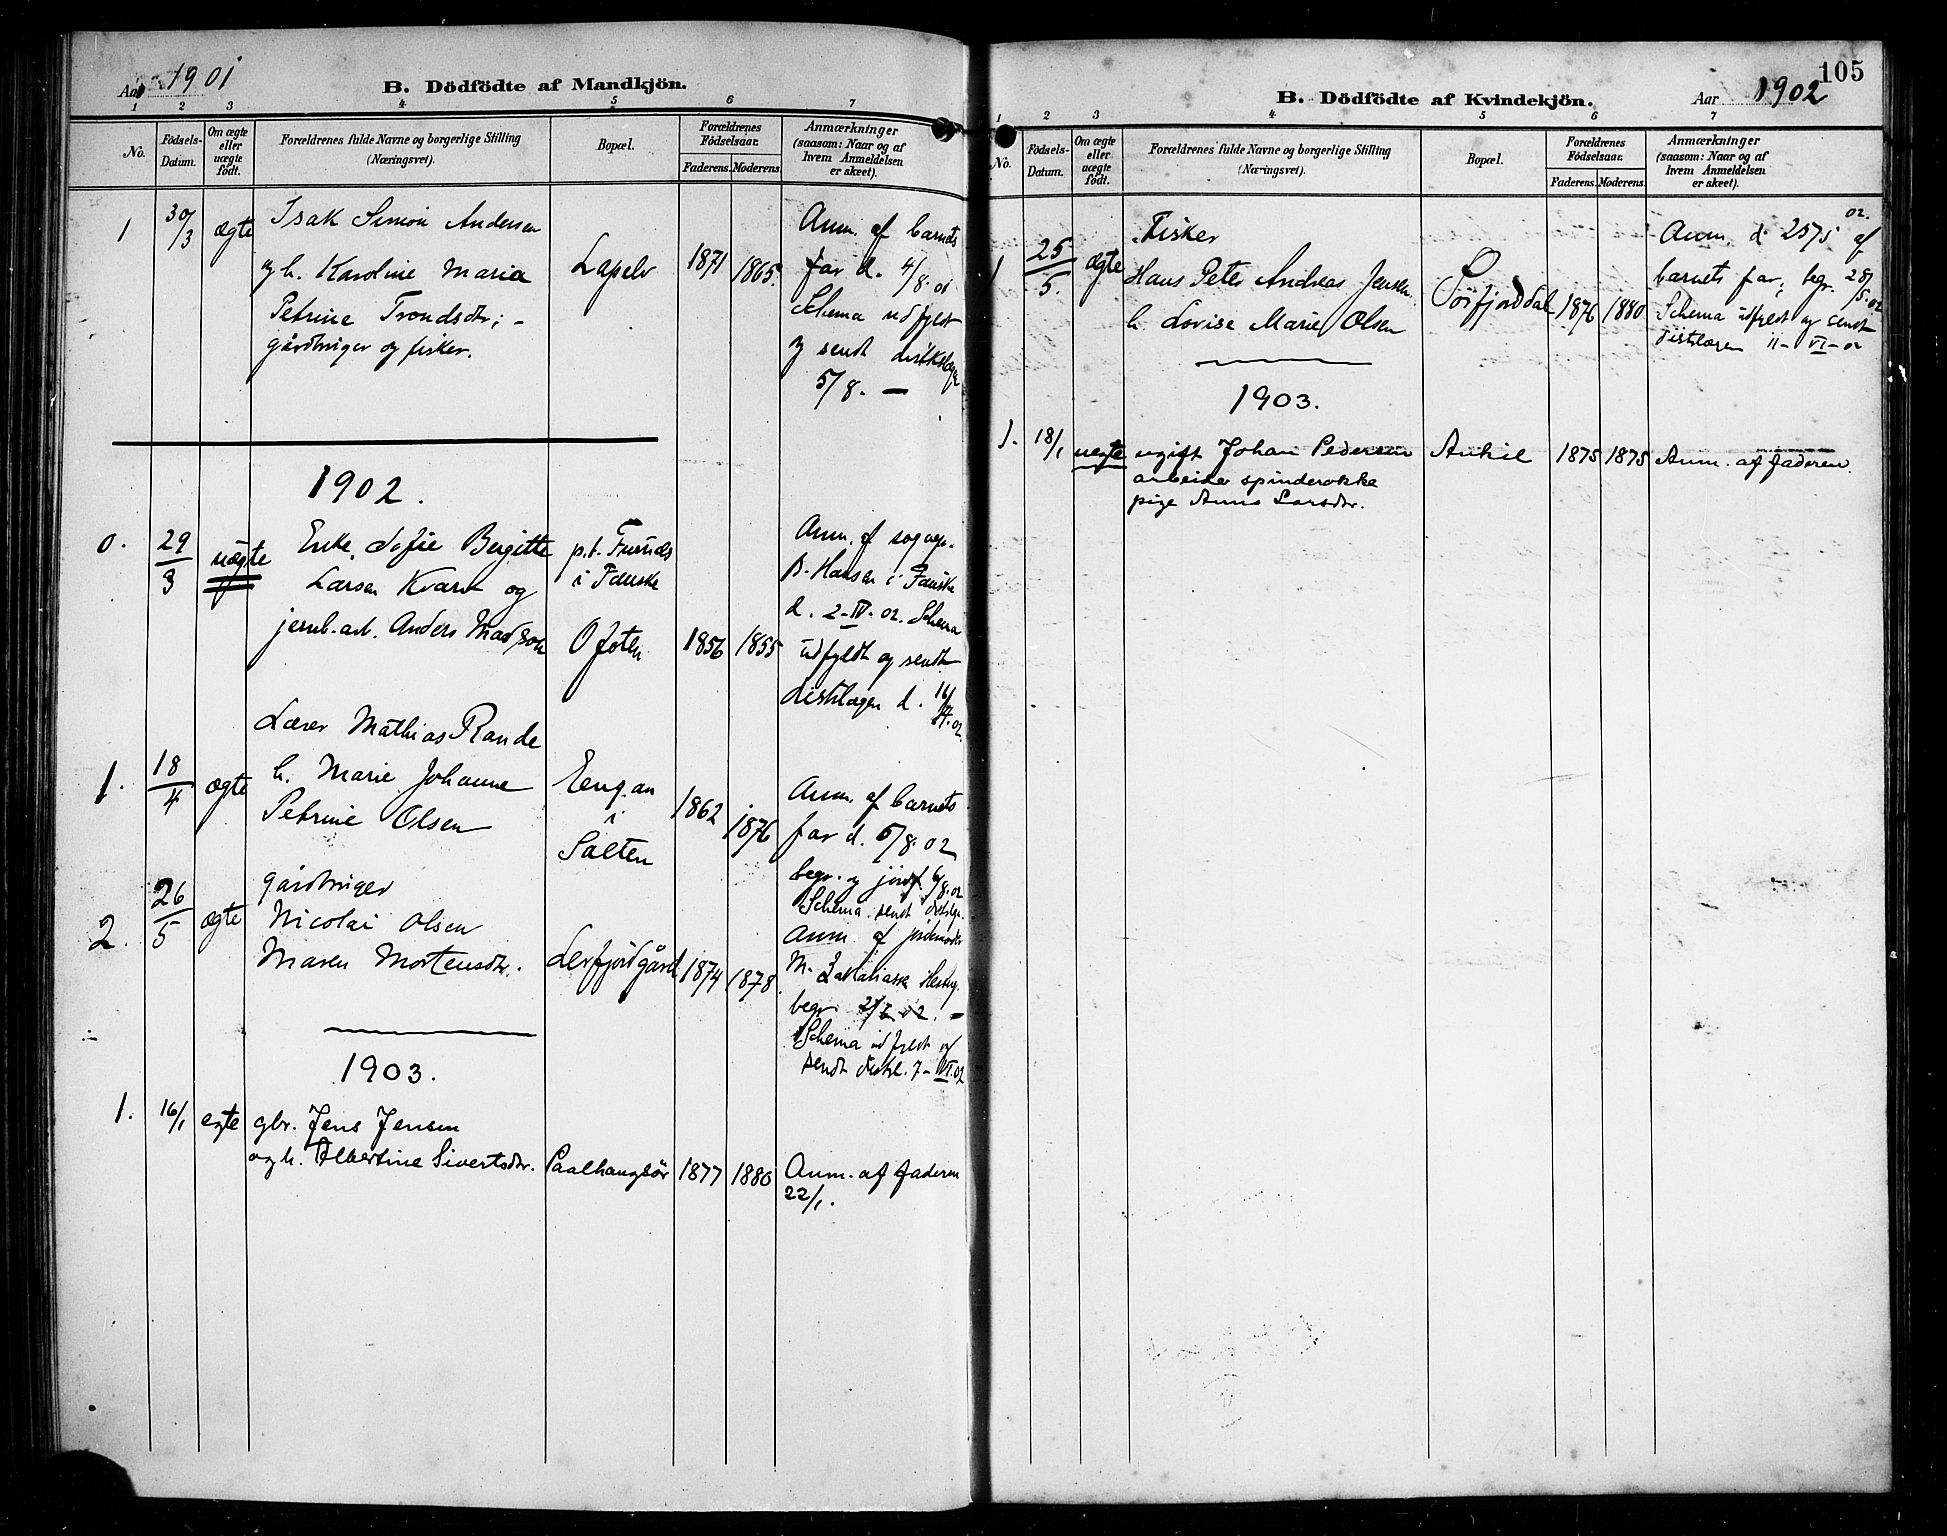 Aar 1901
B. Dödfödte af Mandkjön.
1 2 3 4 5 6 7
No.
Födsels-Datum.
Om ægte eller uægte födt.
Forældrenes fulde Navne og borgerlige Stilling
(Næringsvei).
Bopæl.
Forældrenes Födselsaar.
Faderens. Moderens.
Anmærkninger
(saasom: Naar og af
hvem Anmeldelsen
er skeet).
1 30/3 ægte
Isak Simon Andersen
og h. Karoline Maria
Petrine Trondsdtr; -
gårdbruger og fisker.
Lapelv 1871 1865.
Anm. af barnets
far d. 4/8.01
Schema udfyldt
og sendt
5/8. —
1902.
0. 29/3 uægte
Enke Sofie Bergitte
Larsen Kvarv og
jernb.arb. Anders Madsson
p.t.
i Fauske
Ofoten 1856 1855
Anm. af
B. Hansen i Fauske
d. 2-IV-02. Schema
udfyldt og sendt
distrlægen d. 16/IV.02.
1. 18/4 ægte
Lærer Mathias Rande
h. Marie Johanne
Petrine Olsen
Eeng.an
i
Salten
1862 1876
Anm. af barnets
far d. 5/8.02
begr. og 6/8.02
Schema sendt
2. 26/5 ægte
gårdbruger
Nicolai Olsen
Maren Mortensdtr.
Lerfjordgård 1874 1878.
Anm. af jordemoder
M. Zakariassen
begr.
Schema udfyldt og
sendt distrl. 7-VI.02
1903.
1. 16/1 egte
gbr. Jens Jensen
og h. Albertine Sivertsdtr.
Paalhaugsör 1877 1880
Anm. af faderen
22/1.
105
B. Dödfödte af Kvindekjön.
Aar 1902
1 2 3 4 5 6 7
No.
Födsels-Datum.
Om ægte eller uægte födt.
Forældrenes fulde Navne og borgerlige Stilling
(Næringsvei).
Bopæl.
Forældrenes Födselsaar.
Faderens. Moderens.
Anmærkninger
(saasom: Naar og af
hvem Anmeldelsen
er skeet).
1 25/5. ægte
Fisker
Hans Peter Andreas Jensen
h. Lovise Marie Olsen
Sörfjorddal 1876 1880
Anm. d. 25/5 02. af
barnets far; begr. 28/5.02
Schema udfyldt og sendt
distrlægen 11-VI-02
1903.
1. 18/1 uegte
ugift Johan Pedersen
arbeider spinderokke
pige Anna Larsdtr.
1875 1875 Anm. af faderen.